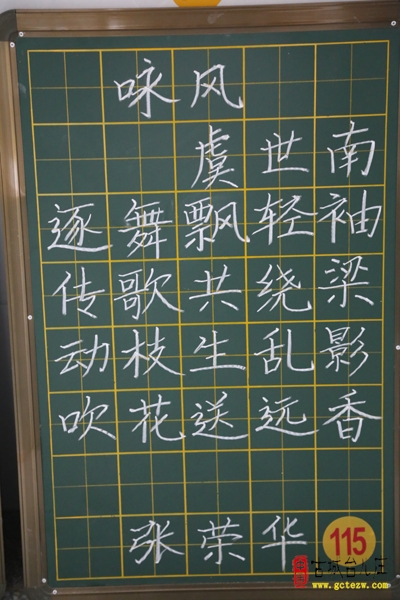 咏风
虞世南
逐舞飘轻袖
传歌共绕梁
动枝生乱影
吹花送远香
张荣华
115
古城台儿庄
www.gctezw.com